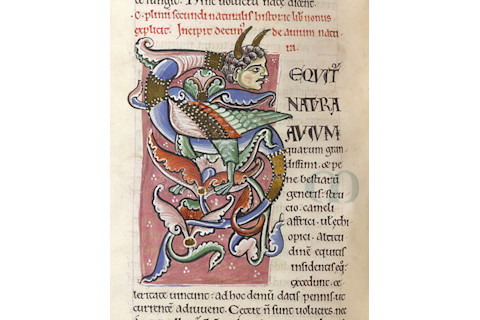 c·plinii secundi naturalis historie lib' nonus
explicit. Incipit decim' de avium natu
ra.
EQUIT'
NATURA
AVIUM
quarum gran
dissimi. & pe
ne bestiarū
generis: stru
cio·cameli
affrici·ul &hi
opici. altitu
dinē equitis
insidentis eq̄
&
leritate vincunt: ad hoc demū datis pennis·ut
currentem adiuvent. Cetero n̄ sunt volucres·nec